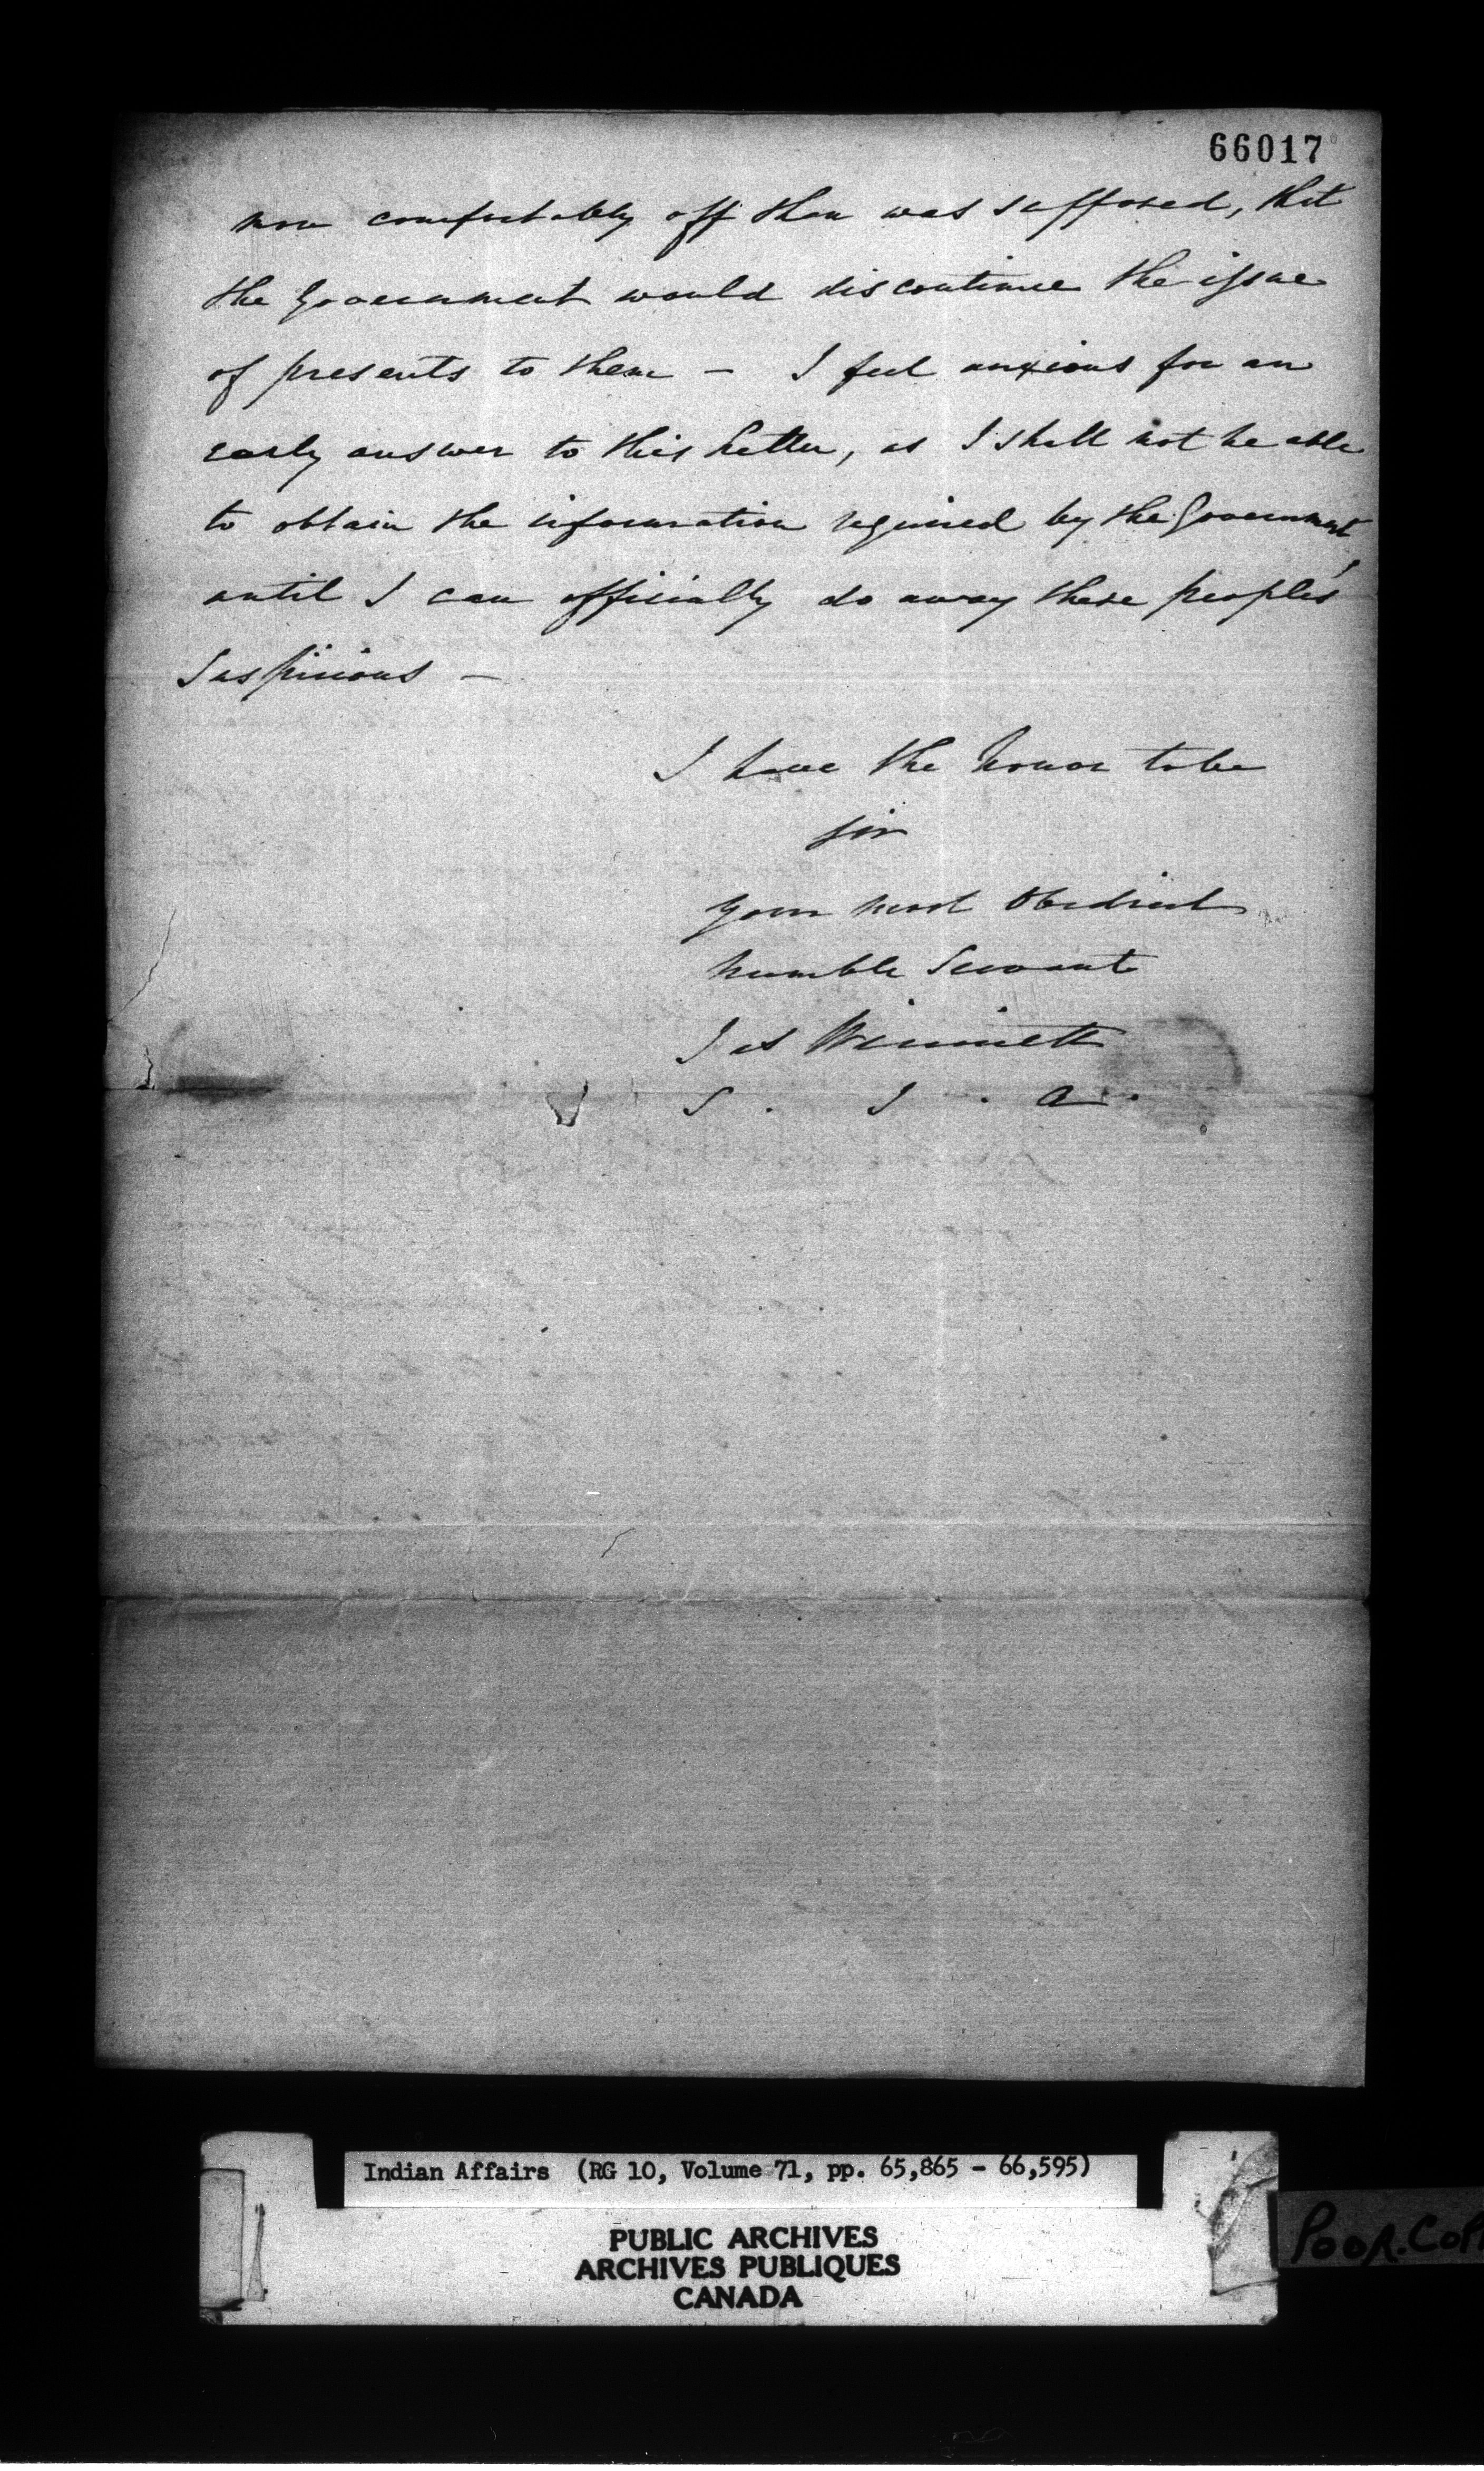 66017
more comfortably off than was supposed, that
the Government would discontinue the issue
of presents to them — I feel anxious for an
early answer to this letter, as I shall not be able
to obtain the information required by the Government
until I can officially do away these people's
Suspicions —
I have the honor to be
Sir
your most Obedient
humble Servant
Jas Winniett
S. I. A.
Indian Affairs (RG 10, Volume 71, pp. 65,865 - 66,595)
PUBLIC ARCHIVES
ARCHIVES PUBLIQUES
CANADA
POOR.COP